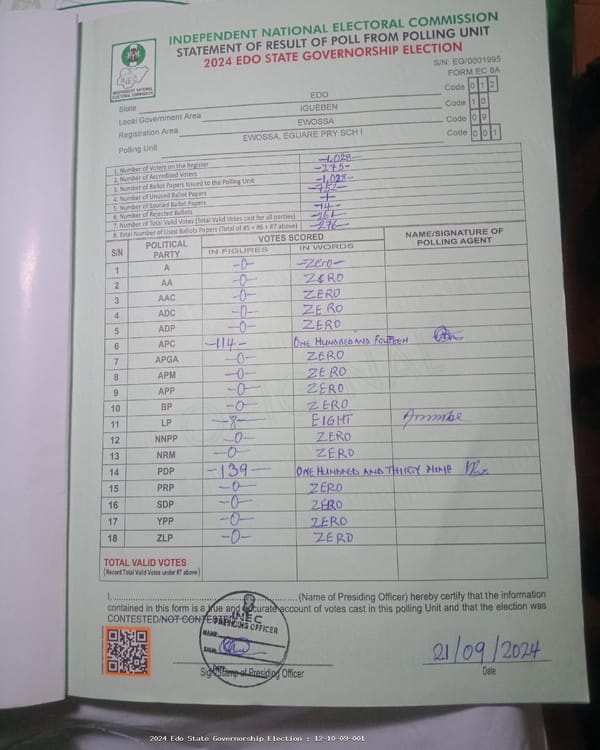 INDEPENDENT NATIONAL ELECTORAL COMMISSION
STATEMENT OF RESULT OF POLL FROM POLLING UNIT
2024 EDO STATE GOVERNORSHIP ELECTION
S/N: EG/0001995
FORM EC 8A
INEC
INDEPENDENT NATIONAL ELECTORAL COMMISSION
State EDO Code 0 1 2
Local Government Area IGUEBEN Code 1 0
Registration Area EWOSSA Code 0 9
Polling Unit EWOSSA, EGUARE PRY SCH I Code 0 0 1
1. Number of Voters on the Register -1,028-
2. Number of Accredited Voters -275-
3. Number of Ballot Papers Issued to the Polling Unit -1,028-
4. Number of Unused Ballot Papers -752-
5. Number of Spoiled Ballot Papers -1-
6. Number of Rejected Ballots -14-
7. Number of Total Valid Votes (Total Valid Votes cast for all parties) -261-
8. Total Number of Used Ballots Papers (Total of #5 + #6 + #7 above) -276-
S/N POLITICAL PARTY VOTES SCORED NAME/SIGNATURE OF POLLING AGENT
IN FIGURES IN WORDS
1 A -0- -Zero-
2 AA -0- ZERO
3 AAC -0- ZERO
4 ADC -0- ZERO
5 ADP -0- ZERO
6 APC -114- ONE HUNDRED AND FOUTEEN
7 APGA -0- ZERO
8 APM -0- ZERO
9 APP -0- ZERO
10 BP -0- ZERO
11 LP -8- EIGHT
12 NNPP -0- ZERO
13 NRM -0- ZERO
14 PDP -139- ONE HUNDRED AND THIRTY NINE
15 PRP -0- ZERO
16 SDP -0- ZERO
17 YPP -0- ZERO
18 ZLP -0- ZERO
TOTAL VALID VOTES
(Record Total Valid Votes under #7 above)
I, (Name of Presiding Officer) hereby certify that the information
contained in this form is a true and accurate account of votes cast in this polling Unit and that the election was
CONTESTED/NOT CONTESTED
INEC
PRESIDING OFFICER
NAME:
SIGN:
DATE:
Sign/Stamp of Presiding Officer
21/09/2024
Date
2024 Edo State Governorship Election : 12-10-09-001